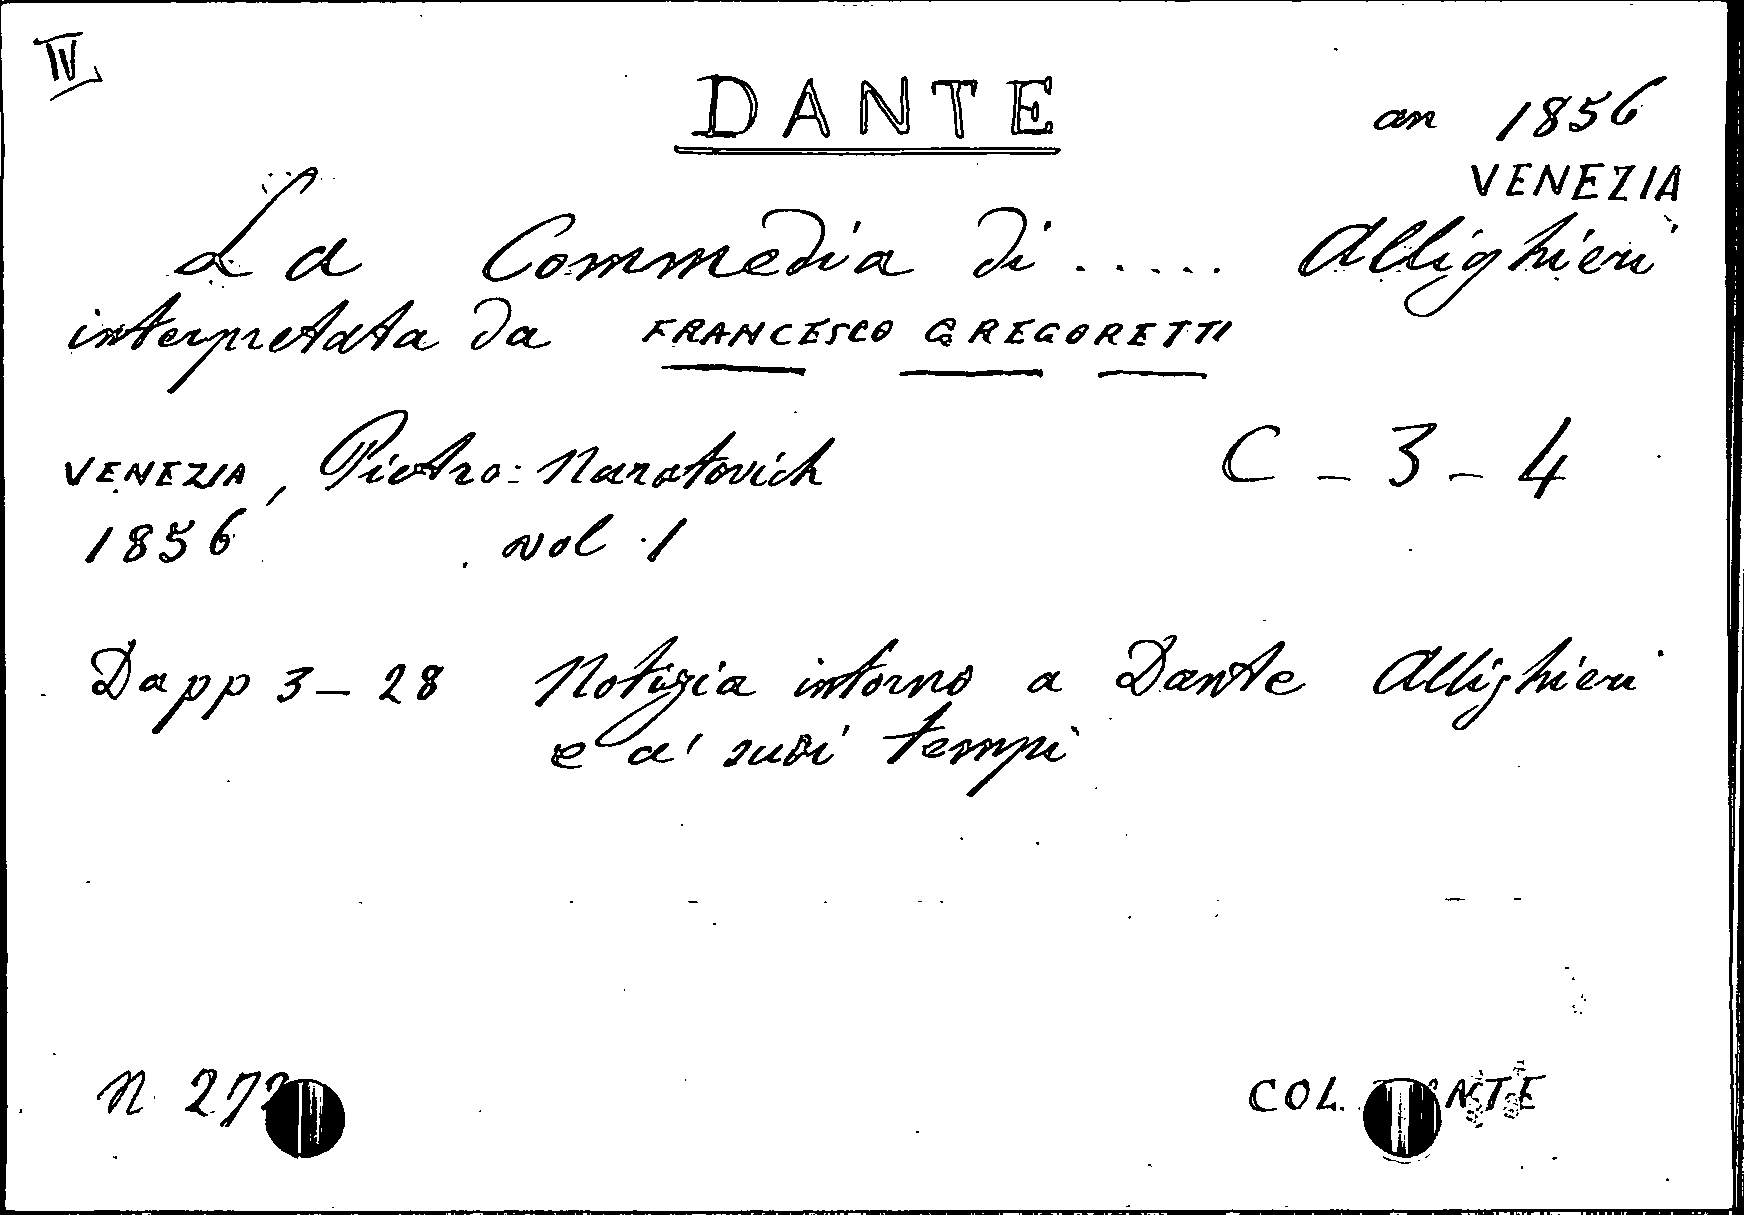 IV
DANTE
an 1856
VENEZIA
La Commedia di ..... Allighieri
interpretata da FRANCESCO GREGORETTI
VENEZIA, Pietro Naratovich C - 3 - 4
1856 vol 1
Da pp 3 - 28 Notizia intorno a Dante Allighieri
e a' suoi tempi
N 272
COL. DANTE